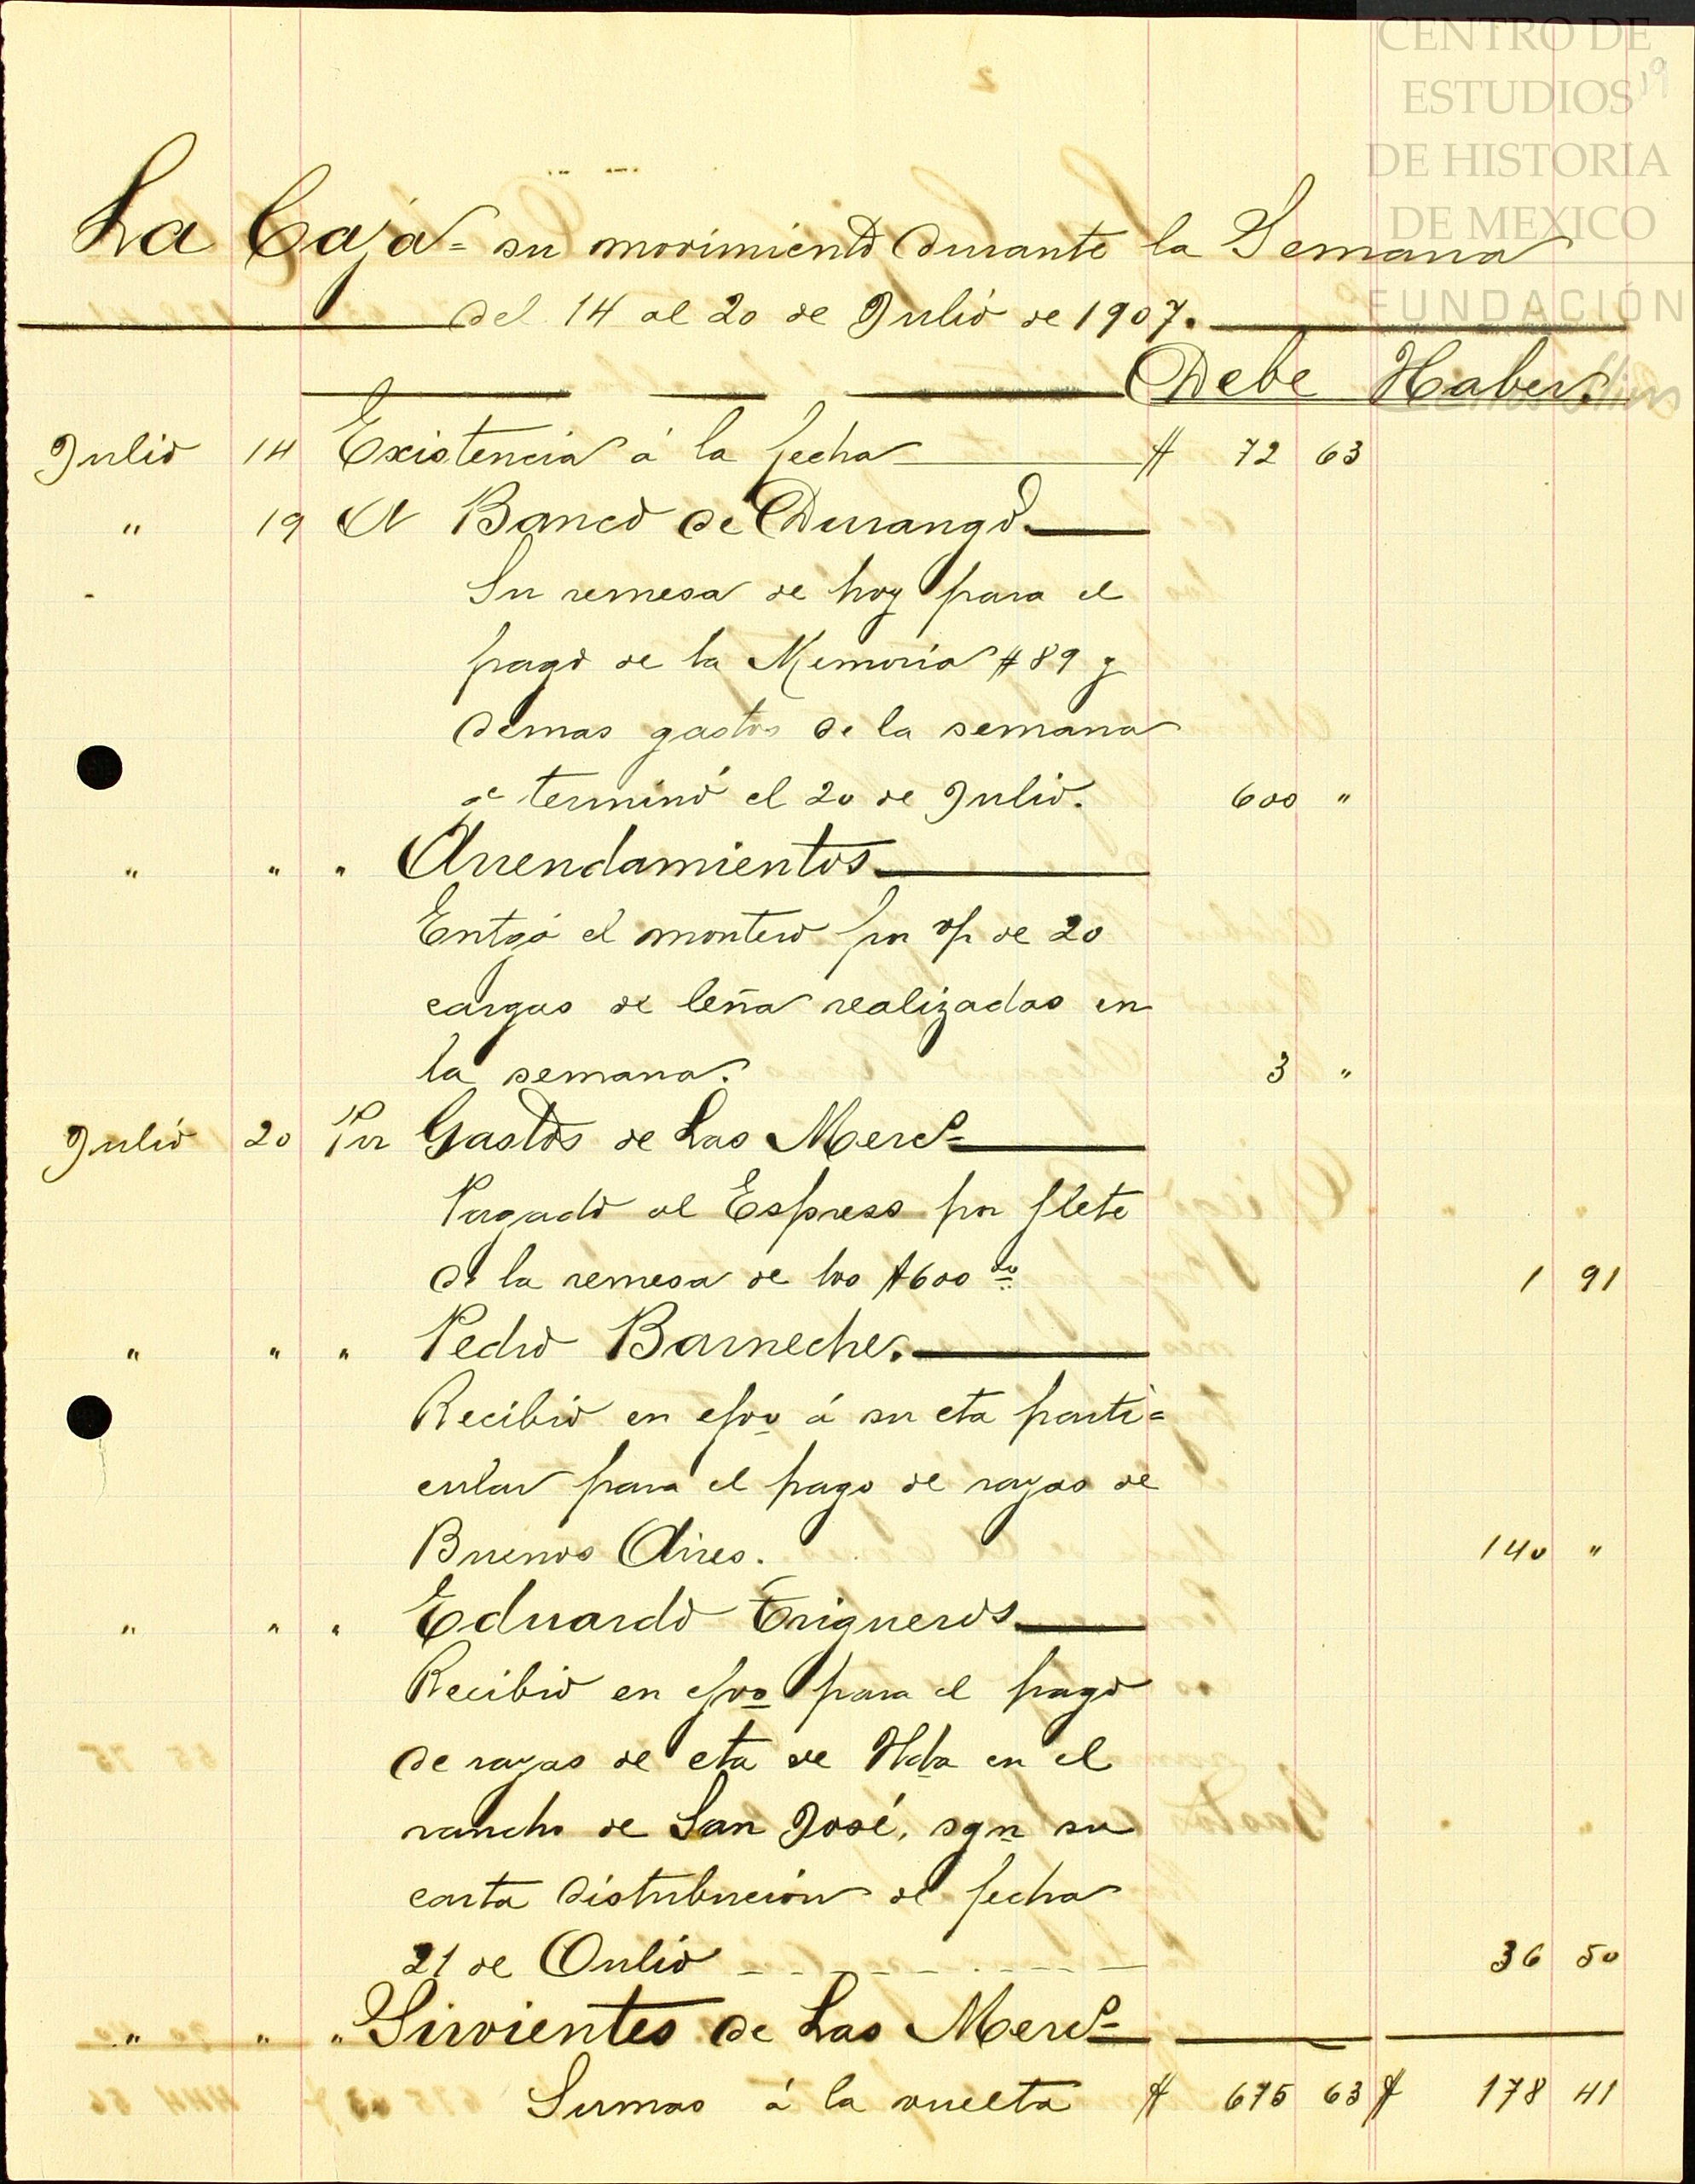 CENTRO DE
ESTUDIOS
DE HISTORIA
DE MEXICO
FUNDACIÓN
19
La Caja = su movimiento durante la Semana
del 14 al 20 de Julio de 1907.
Debe Haber.
Julio 14 Existencia á la fecha $ 72 63
" 19 A Banco de Durango.
Su remesa de hoy para el
pago de la Memoria #89 y
demas gastos de la semana
qe terminó el 20 de Julio. 600 "
" " " Arrendamientos
Entgó el montero por v/p de 20
cargas de leña realizadas en
la semana. 3 "
Julio 20 Por Gastos de Las Merds
Pagado al Espress por flete
de la remesa de los $600 00 1 91
" " " Pedro Barneche.
Recibió en efvo á su cta parti=
cular para el pago de rayas de
Buenos Aires. 140 "
" " " Eduardo Trigueros
Recibió en efvo para el pago
de rayas de cta de Hda en el
rancho de San José, sgn su
carta distribución de fecha
21 de Julio 36 50
" " " Sirvientes de Las Merds
Sumas á la vuelta $ 675 63 $ 178 41